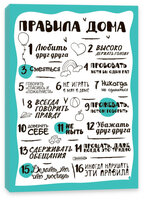 ПРАВИЛА ДОМА
1 Любить
друг друга
2 ВЫСОКО
ДЕРЖАТЬ ГОЛОВУ
3 СМЕЯТЬСЯ
4 ПРОБОВАТЬ
ХОТЯ БЫ ОДИН РАЗ
5 ГОВОРИТЬ
«СПАСИБО» И
«ПОЖАЛУЙСТА»
6 НЕ ИГРАТЬ
С ЕДОЙ
7 Никогда
не
8 ВСЕГДА
ГОВОРИТЬ
ПРАВДУ
9
10 ДОВЕРЯТЬ
СЕБЕ
11 НЕ
НЫТЬ
12 Уважать
друг друга
13 СДЕРЖИВАТЬ
ОБЕЩАНИЯ
14
15 Делать то,
что
16 ИНОГДА НАРУШАТЬ
ЭТИ ПРАВИЛА